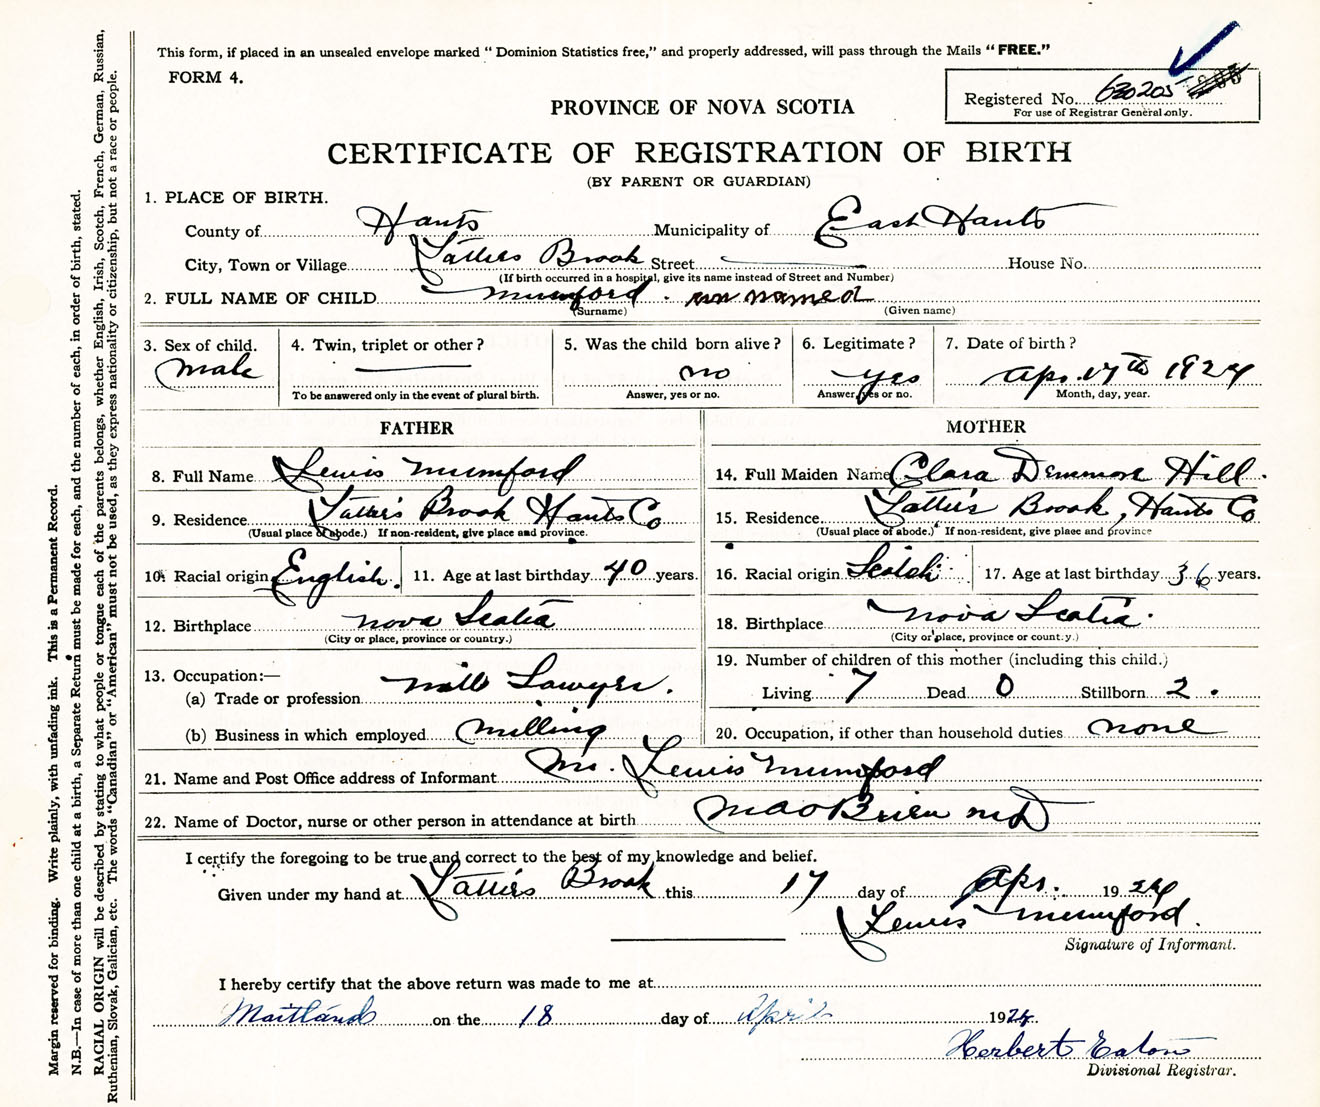 This form, if placed in an unsealed envelope marked “ Dominion Statistics free,” and properly addressed, will pass through the Mails “ FREE.”
FORM 4.
Registered No. 630205
For use of Registrar General only.
PROVINCE OF NOVA SCOTIA
CERTIFICATE OF REGISTRATION OF BIRTH
(BY PARENT OR GUARDIAN)
1. PLACE OF BIRTH.
County of Hants Municipality of East Hants
City, Town or Village Lattie's Brook Street House No.
(If birth occurred in a hospital, give its name instead of Street and Number)
2. FULL NAME OF CHILD Mumford. un named
(Surname) (Given name)
3. Sex of child. 4. Twin, triplet or other ? 5. Was the child born alive ? 6. Legitimate ? 7. Date of birth ?
male no yes Apr. 17th 1924
To be answered only in the event of plural birth. Answer, yes or no. Answer, yes or no. Month, day, year.
FATHER MOTHER
8. Full Name Lewis Mumford 14. Full Maiden Name Clara Hill.
9. Residence Lattie's Brook Hants Co 15. Residence Lattie's Brook, Hants Co
(Usual place of abode.) If non-resident, give place and province. (Usual place of abode.) If non-resident, give place and province
10. Racial origin English. 11. Age at last birthday 40 years. 16. Racial origin Scotch 17. Age at last birthday 36 years.
12. Birthplace Nova Scotia 18. Birthplace Nova Scotia.
(City or place, province or country.) (City or place, province or country.)
13. Occupation:— 19. Number of children of this mother (including this child.)
(a) Trade or profession mill Sawyer. Living 7 Dead 0 Stillborn 2.
(b) Business in which employed milling 20. Occupation, if other than household duties none
21. Name and Post Office address of Informant Mr. Lewis Mumford
22. Name of Doctor, nurse or other person in attendance at birth MacO'Brien MD
I certify the foregoing to be true and correct to the best of my knowledge and belief.
Given under my hand at Lattie's Brook this 17 day of Apr. 1924
Lewis Mumford.
Signature of Informant.
I hereby certify that the above return was made to me at
Maitland on the 18 day of April 1924.
Herbert Eaton
Divisional Registrar.
Margin reserved for binding. Write plainly, with unfading ink. This is a Permanent Record.
N.B.—In case of more than one child at a birth, a Separate Return must be made for each, and the number of each, in order of birth, stated.
RACIAL ORIGIN will be described by stating to what people or tongue each of the parents belongs, whether English, Irish, Scotch, French, German, Russian,
Ruthenian, Slovak, Galician, etc. The words “Canadian” or “American” must not be used, as they express nationality or citizenship, but not a race or people.